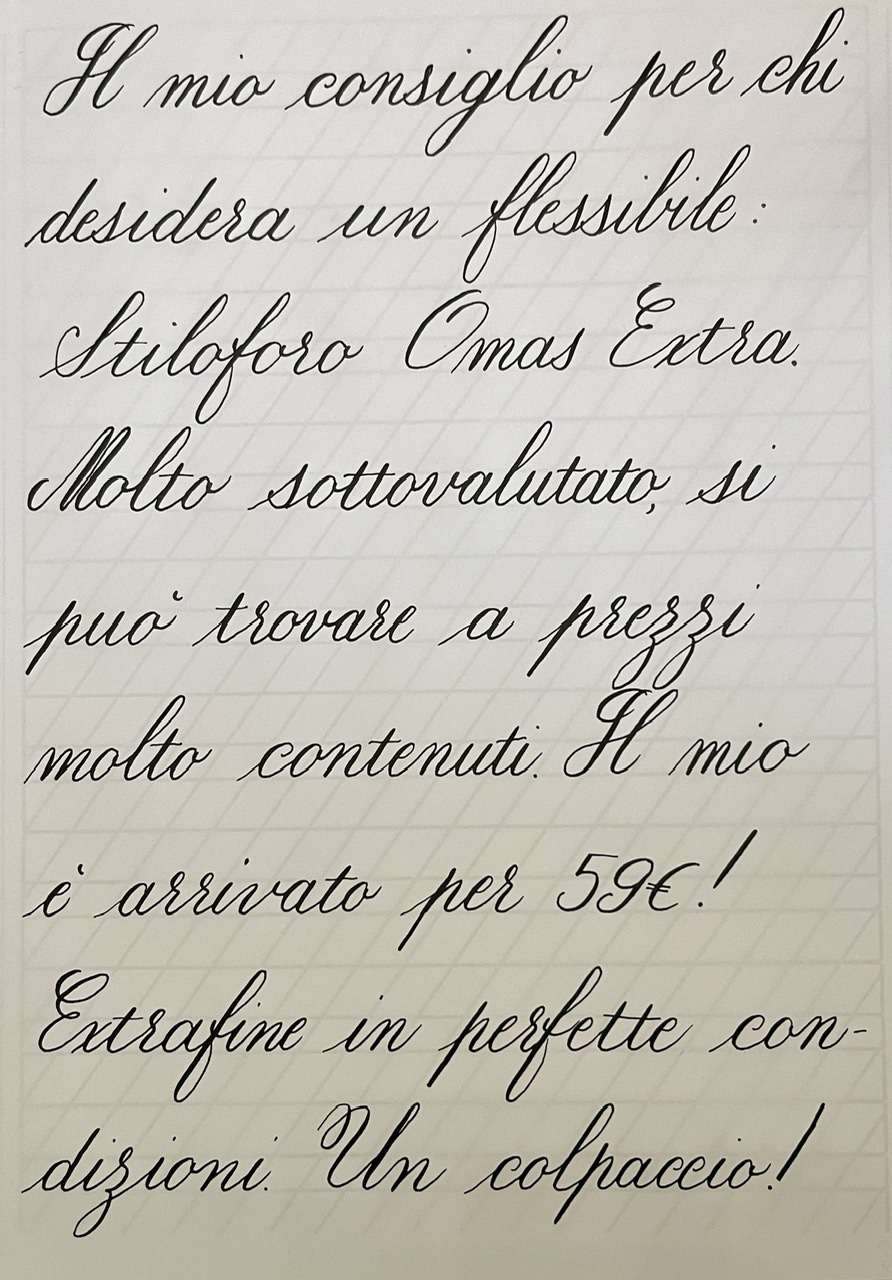 Il mio consiglio per chi
desidera un flessibile:
Stiloforo Omas Extra.
Molto sottovalutato, si
può trovare a prezzi
molto contenuti. Il mio
è arrivato per 59€!
Extrafine in perfette con-
dizioni. Un colpaccio!